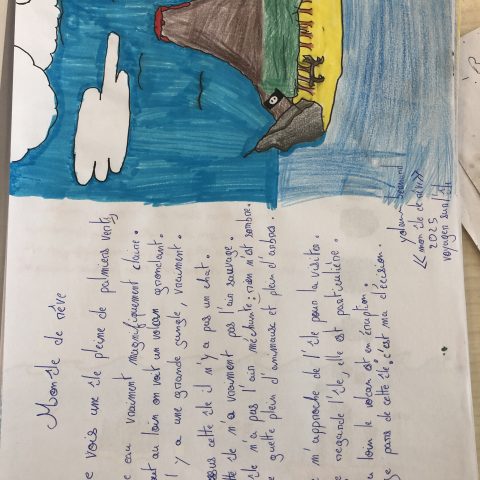 Mon île de rêve
e vois une île pleine de palmiers verts,
e eau vraiment magnifiquement claire.
ut au loin on voit un volcan grondant.
l y a une grande jungle, vraiment.
sus cette île il n'y a pas un chat.
tte île n'a vraiment pas l'air sauvage.
île n'a pas l'air méchante: rien n'est sombre.
e guette plein d'animaux et plein d'arbres.
e m'approche de l'île pour la visiter.
e regarde l'île, elle est particulière.
u loin le volcan est en éruption.
e pars de cette île: c'est ma décision.
« mon île de rêve »
2025
voyager sur